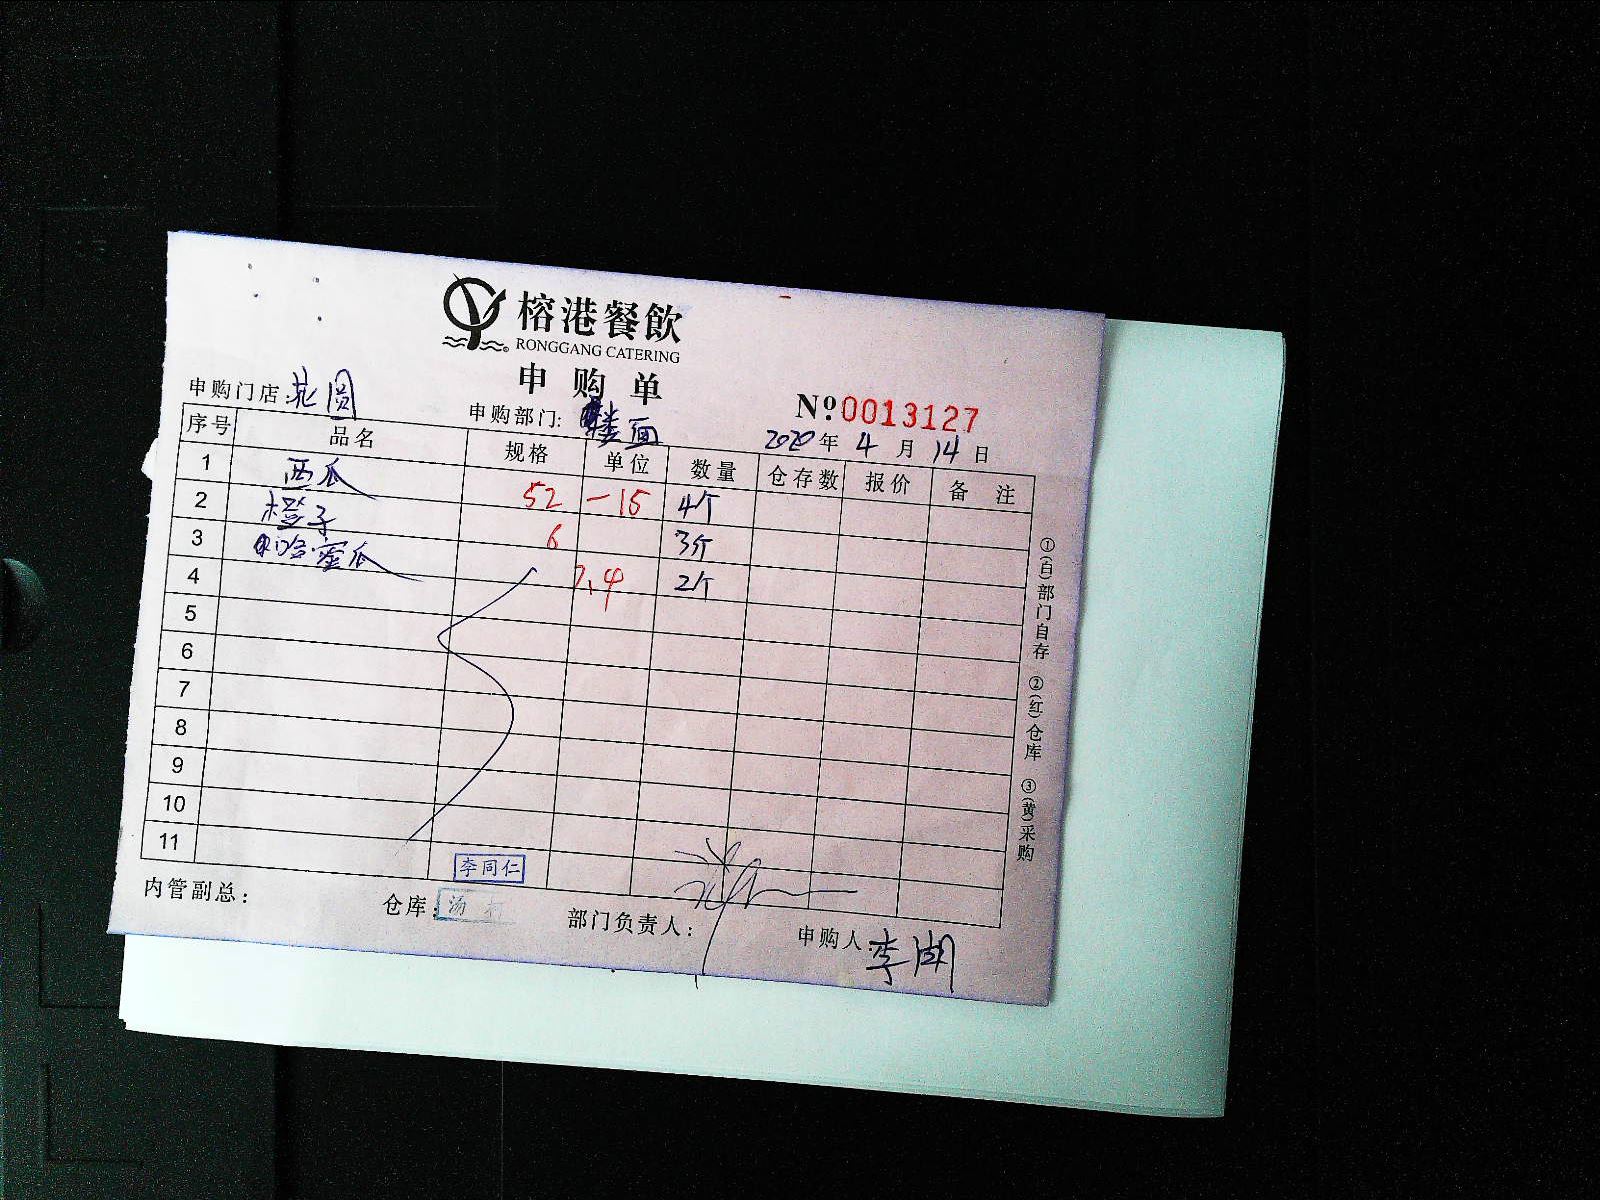 榕港餐飲
RONGGANG CATERING
申购单
申购门店: 花圆 申购部门: 楼面 №0013127
2020年4月14日
序号 品名 规格 单位 数量 仓存数 报价 备注
1 西瓜 52 -15 4个
2 橙子 6 3个
3 哈蜜瓜 7.4 2个
4
5
6
7
8
9
10
11
①(白)部门自存 ②(红)仓库 ③(黄)采购
李同仁
内管副总: 仓库: 汤 部门负责人: 申购人: 李湖